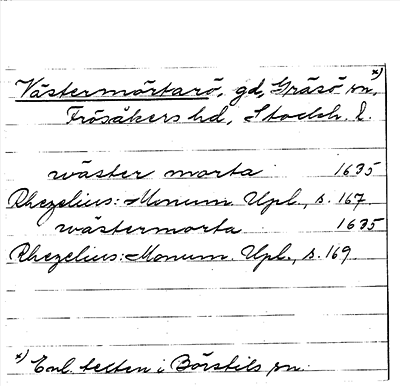 x)
Västermörtarö, gd, Gräsö sn,
Frösåkers hd, Stockh. l.
wäster morta 1635
Rhezelius: Monum. Upl., s. 167.
wästermorta 1635
Rhezelius: Monum. Upl., s. 169.
x) Enl. texten i Börstils sn.